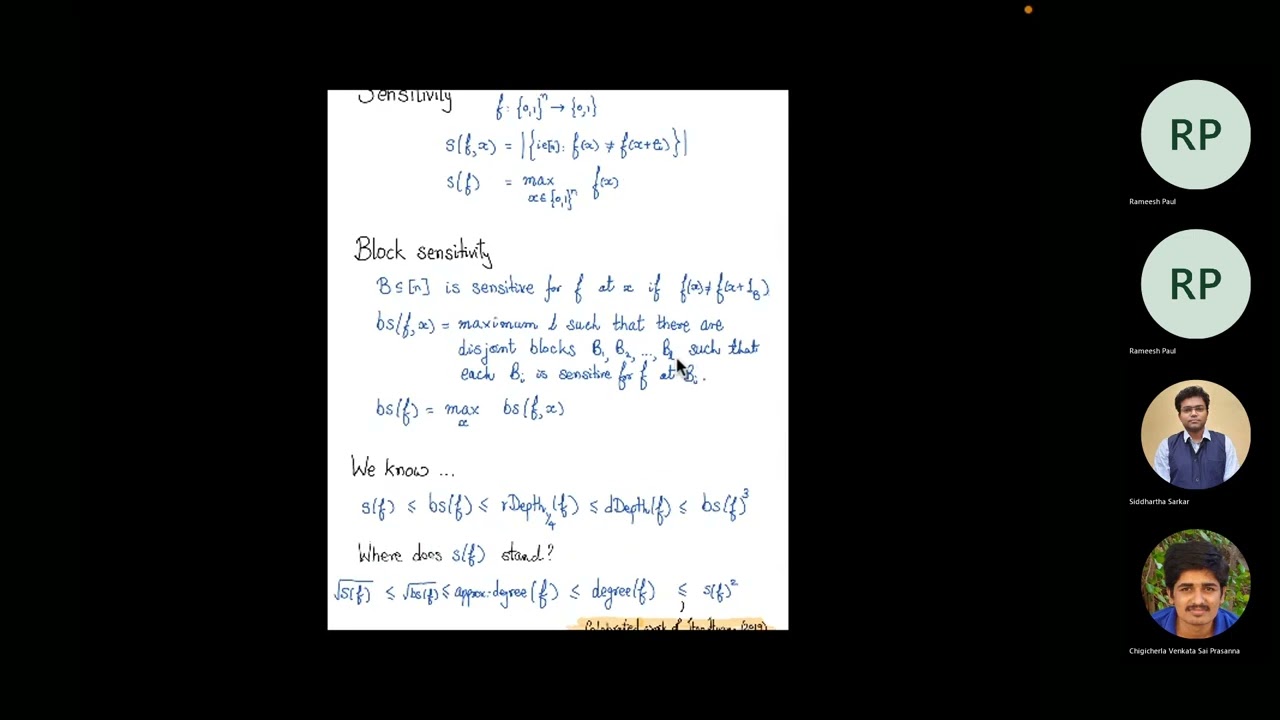 Sensitivity f: {0,1}ⁿ → {0,1}
s(f,x) = |{i∈[n]: f(x) ≠ f(x+eᵢ)}|
s(f) = max f(x)
x∈{0,1}ⁿ
Block sensitivity
B ⊆ [n] is sensitive for f at x if f(x)≠f(x+1_B)
bs(f,x) = maximum l such that there are
disjoint blocks B₁, B₂, ..., B_l such that
each Bᵢ is sensitive for f at Bᵢ.
bs(f) = max bs(f,x)
x
We know ...
s(f) ≤ bs(f) ≤ rDepth_{1/4}(f) ≤ dDepth(f) ≤ bs(f)³
Where does s(f) stand?
√s(f) ≤ √bs(f) ≤ approx-degree(f) ≤ degree(f) ≤ s(f)²
Celebrated work of (2019)
RP
Rameesh Paul
RP
Rameesh Paul
Siddhartha Sarkar
Chigicherla Venkata Sai Prasanna